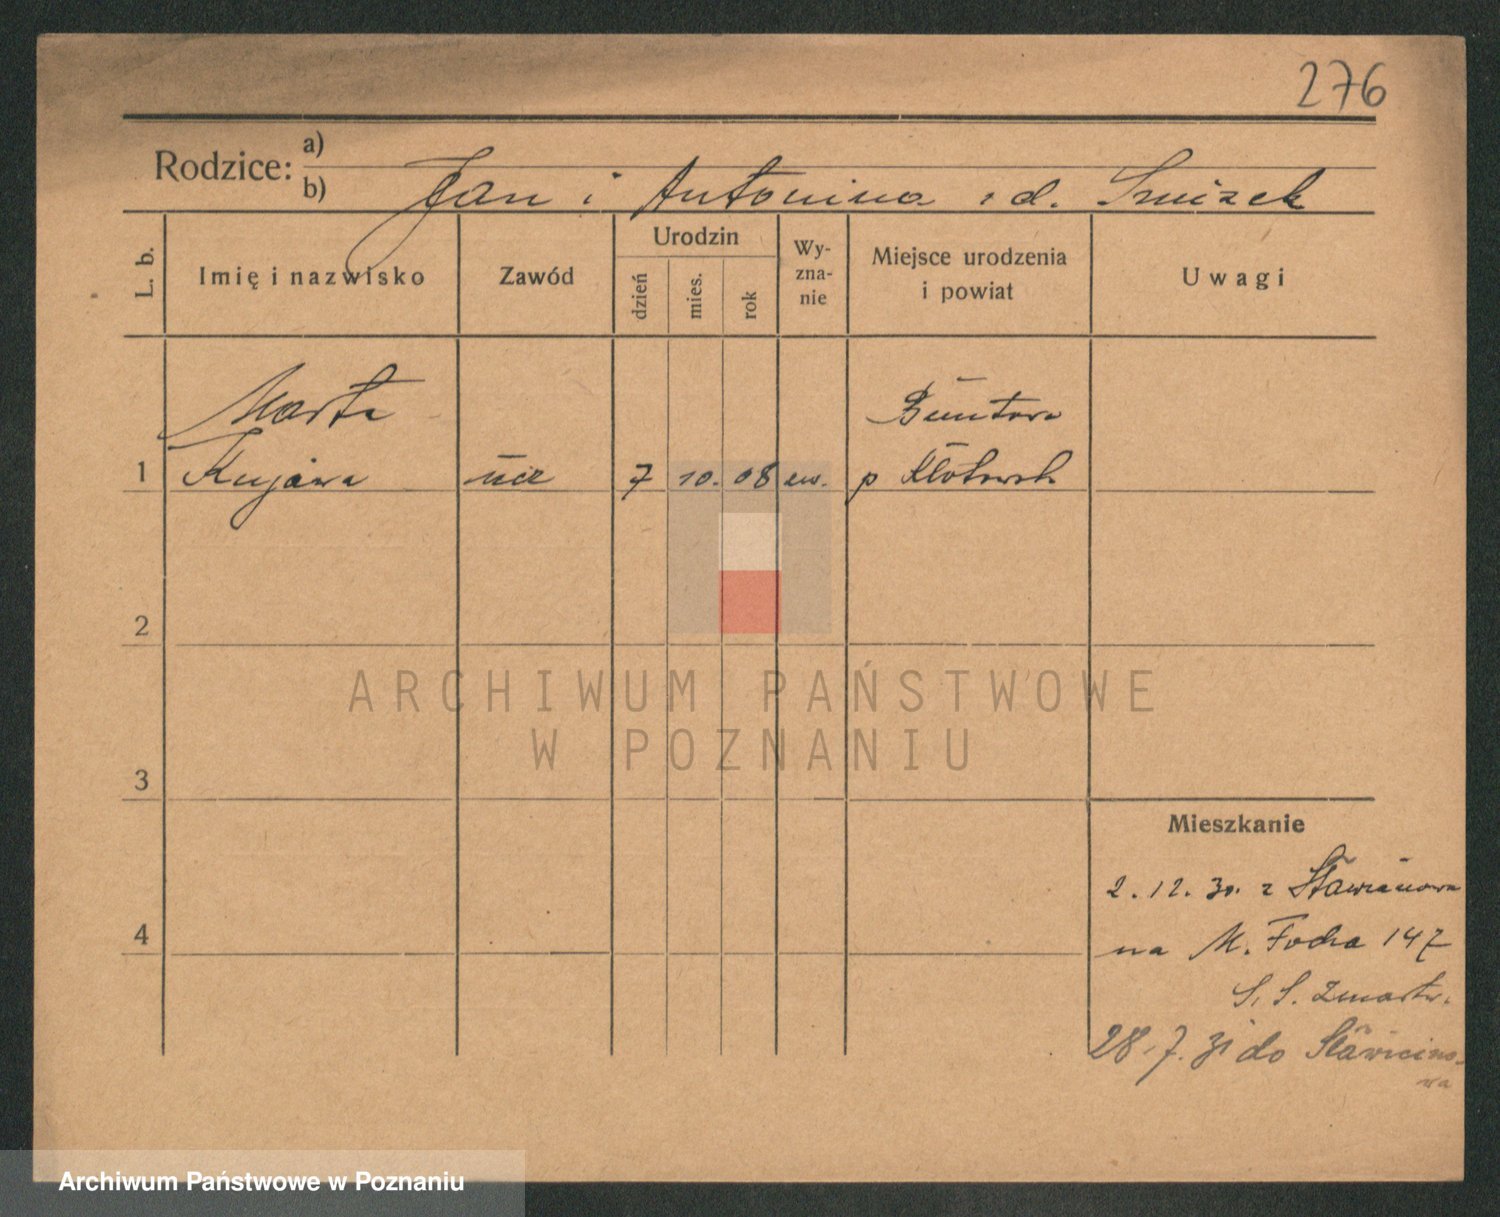 276
Rodzice: a)
b) Jan i Antonina z d. Smiszek
L. b.
Imię i nazwisko
Zawód
Urodzin
dzień
mies.
rok
Wy-
zna-
nie
Miejsce urodzenia
i powiat
Uwagi
Marta
Kujawa
ucz
7
10.
08
ew.
p
1
2
3
4
Mieszkanie
2. 12. 30. z
na M. Focha 147
S. S. Zmartw.
28. 7. 31 do
ARCHIWUM PAŃSTWOWE
W POZNANIU
Archiwum Państwowe w Poznaniu